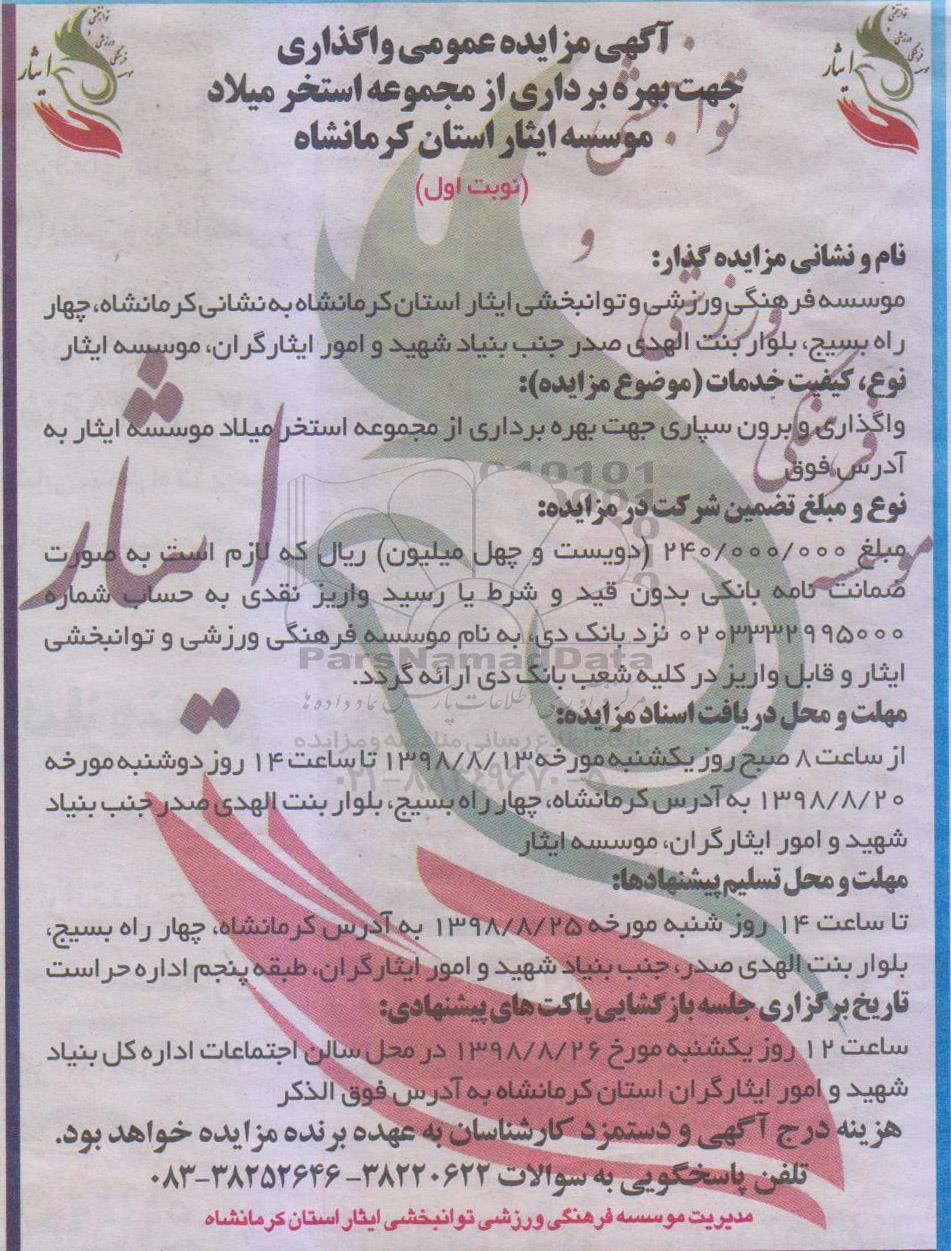 آگهی مزایده عمومی واگذاری
جهت بهره برداری از مجموعه استخر میلاد
موسسه ایثار استان کرمانشاه
(نوبت اول)
نام و نشانی مزایده گذار:
موسسه فرهنگی ورزشی و توانبخشی ایثار استان کرمانشاه به نشانی کرمانشاه، چهار
راه بسیج، بلوار بنت الهدی صدر جنب بنیاد شهید و امور ایثارگران، موسسه ایثار
نوع، کیفیت خدمات (موضوع مزایده):
واگذاری و برون سپاری جهت بهره برداری از مجموعه استخر میلاد موسسه ایثار به
آدرس فوق
نوع و مبلغ تضمین شرکت در مزایده:
مبلغ ۲۴۰/۰۰۰/۰۰۰ (دویست و چهل میلیون) ریال که لازم است به صورت
ضمانت نامه بانکی بدون قید و شرط یا رسید واریز نقدی به حساب شماره
۰۲۰۳۳۳۲۹۹۵۰۰۰ نزد بانک دی، به نام موسسه فرهنگی ورزشی و توانبخشی
ایثار و قابل واریز در کلیه شعب بانک دی ارائه گردد.
مهلت و محل دریافت اسناد مزایده:
از ساعت ۸ صبح روز یکشنبه مورخه ۱۳۹۸/۸/۱۳ تا ساعت ۱۴ روز دوشنبه مورخه
۱۳۹۸/۸/۲۰ به آدرس کرمانشاه، چهار راه بسیج، بلوار بنت الهدی صدر جنب بنیاد
شهید و امور ایثارگران، موسسه ایثار
مهلت و محل تسلیم پیشنهادها:
تا ساعت ۱۴ روز شنبه مورخه ۱۳۹۸/۸/۲۵ به آدرس کرمانشاه، چهار راه بسیج،
بلوار بنت الهدی صدر، جنب بنیاد شهید و امور ایثارگران، طبقه پنجم اداره حراست
تاریخ برگزاری جلسه بازگشایی پاکت های پیشنهادی:
ساعت ۱۲ روز یکشنبه مورخ ۱۳۹۸/۸/۲۶ در محل سالن اجتماعات اداره کل بنیاد
شهید و امور ایثارگران استان کرمانشاه به آدرس فوق الذکر
هزینه درج آگهی و دستمزد کارشناسان به عهده برنده مزایده خواهد بود.
تلفن پاسخگویی به سوالات ۳۸۲۲۰۶۲۲- ۳۸۲۵۲۶۴۶-۰۸۳
مدیریت موسسه فرهنگی ورزشی توانبخشی ایثار استان کرمانشاه
موسسه فرهنگی ورزشی و توانبخشی
ایثار
ParsNamadData
پایگاه اطلاع رسانی مناقصه و مزایده
۰۲۱-۸۸۳۴۹۶۷۰-۵